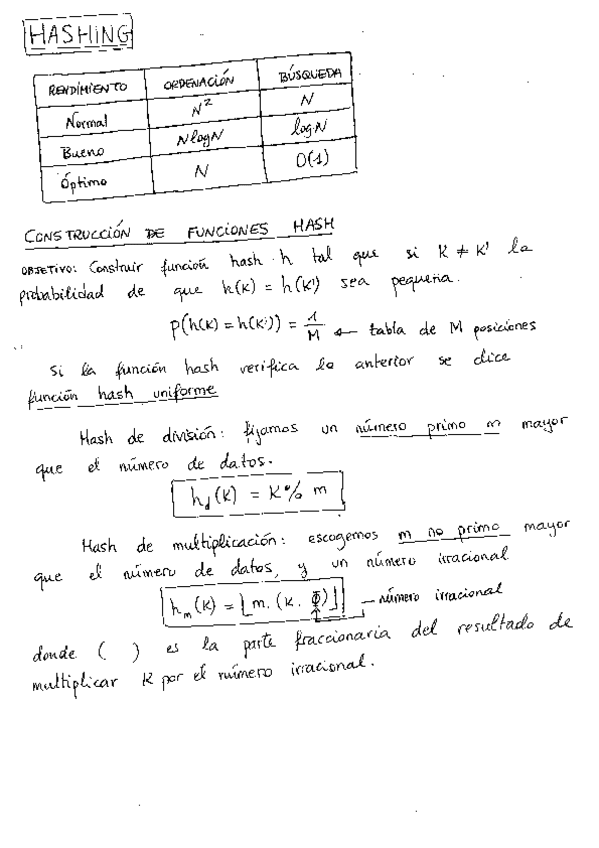 HASHING
RENDIMIENTO ORDENACIÓN BÚSQUEDA
Normal N² N
Bueno NlogN logN
Óptimo N O(1)
CONSTRUCCIÓN DE FUNCIONES HASH
OBJETIVO: Construir función hash h tal que si K ≠ K' la
probabilidad de que h(K) = h(K') sea pequeña.
p(h(K) = h(K')) = 1/M ← tabla de M posiciones
Si la función hash verifica lo anterior se dice
función hash uniforme
Hash de división: fijamos un número primo m mayor
que el número de datos.
h_d(K) = K % m
Hash de multiplicación: escogemos m no primo mayor
que el número de datos, y un número irracional
h_m(K) = ⌊m. (K. Φ)⌋ número irracional
donde ( ) es la parte fraccionaria del resultado de
multiplicar K por el número irracional.